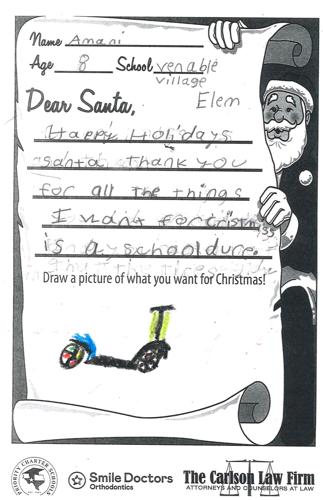 Name Amani
Age 8 School venable
village
Elem
Dear Santa,
Happy Holidays
santa thank you
for all the things
I want for cristmass
is a schooldure.
Draw a picture of what you want for Christmas!
PRIORITY CHARTER SCHOOLS
Smile Doctors
Orthodontics
The Carlson Law Firm
ATTORNEYS AND COUNSELORS AT LAW